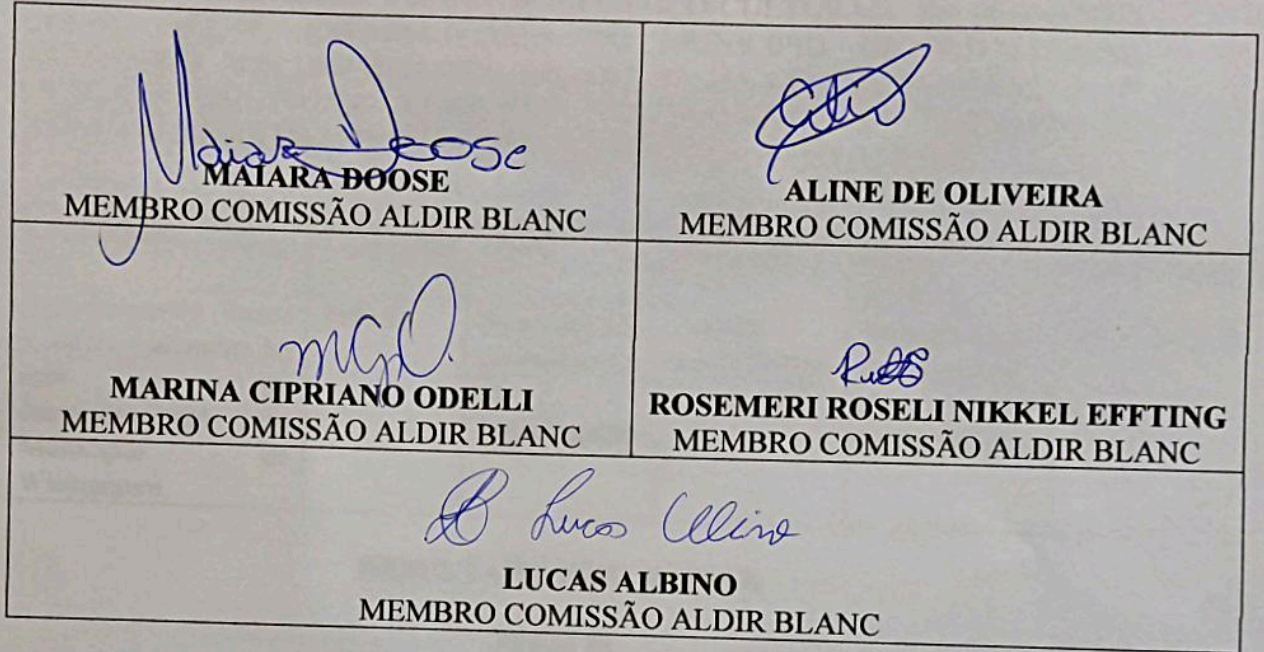 Maiara Doose
MAIARA DOOSE
MEMBRO COMISSÃO ALDIR BLANC
ALINE DE OLIVEIRA
MEMBRO COMISSÃO ALDIR BLANC
MCO.
MARINA CIPRIANO ODELLI
MEMBRO COMISSÃO ALDIR BLANC
ROSEMERI ROSELI NIKKEL EFFTING
MEMBRO COMISSÃO ALDIR BLANC
Lucas Albino
LUCAS ALBINO
MEMBRO COMISSÃO ALDIR BLANC